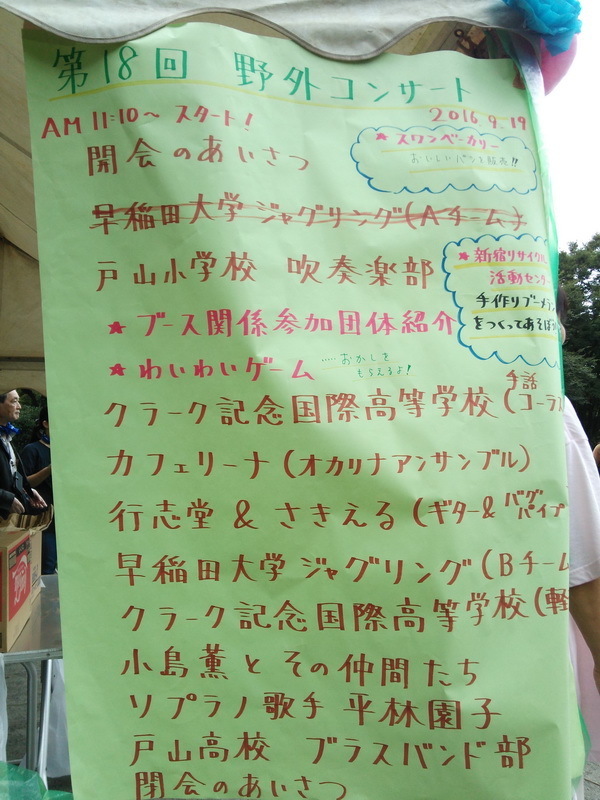 第18回 野外コンサート
AM 11:10～ スタート!
2016 9.19
開会のあいさつ
★ スワンベーカリー
おいしいパンを販売!!
早稲田大学ジャグリング(Aチーム)
戸山小学校 吹奏楽部
★ 新宿リサイクル
活動センター
手作りブーメラン
をつくってあそぼう
★ ブース関係参加団体紹介
★ わいわいゲーム
……おかしを
もらえるよ!
クラーク記念国際高等学校(手話コーラス
カフェリーナ(オカリナアンサンブル)
行志堂 & さきえる(ギター&バグパイプ
早稲田大学ジャグリング(Bチーム
クラーク記念国際高等学校(軽
小島薫とその仲間たち
ソプラノ歌手 平林園子
戸山高校 ブラスバンド部
閉会のあいさつ